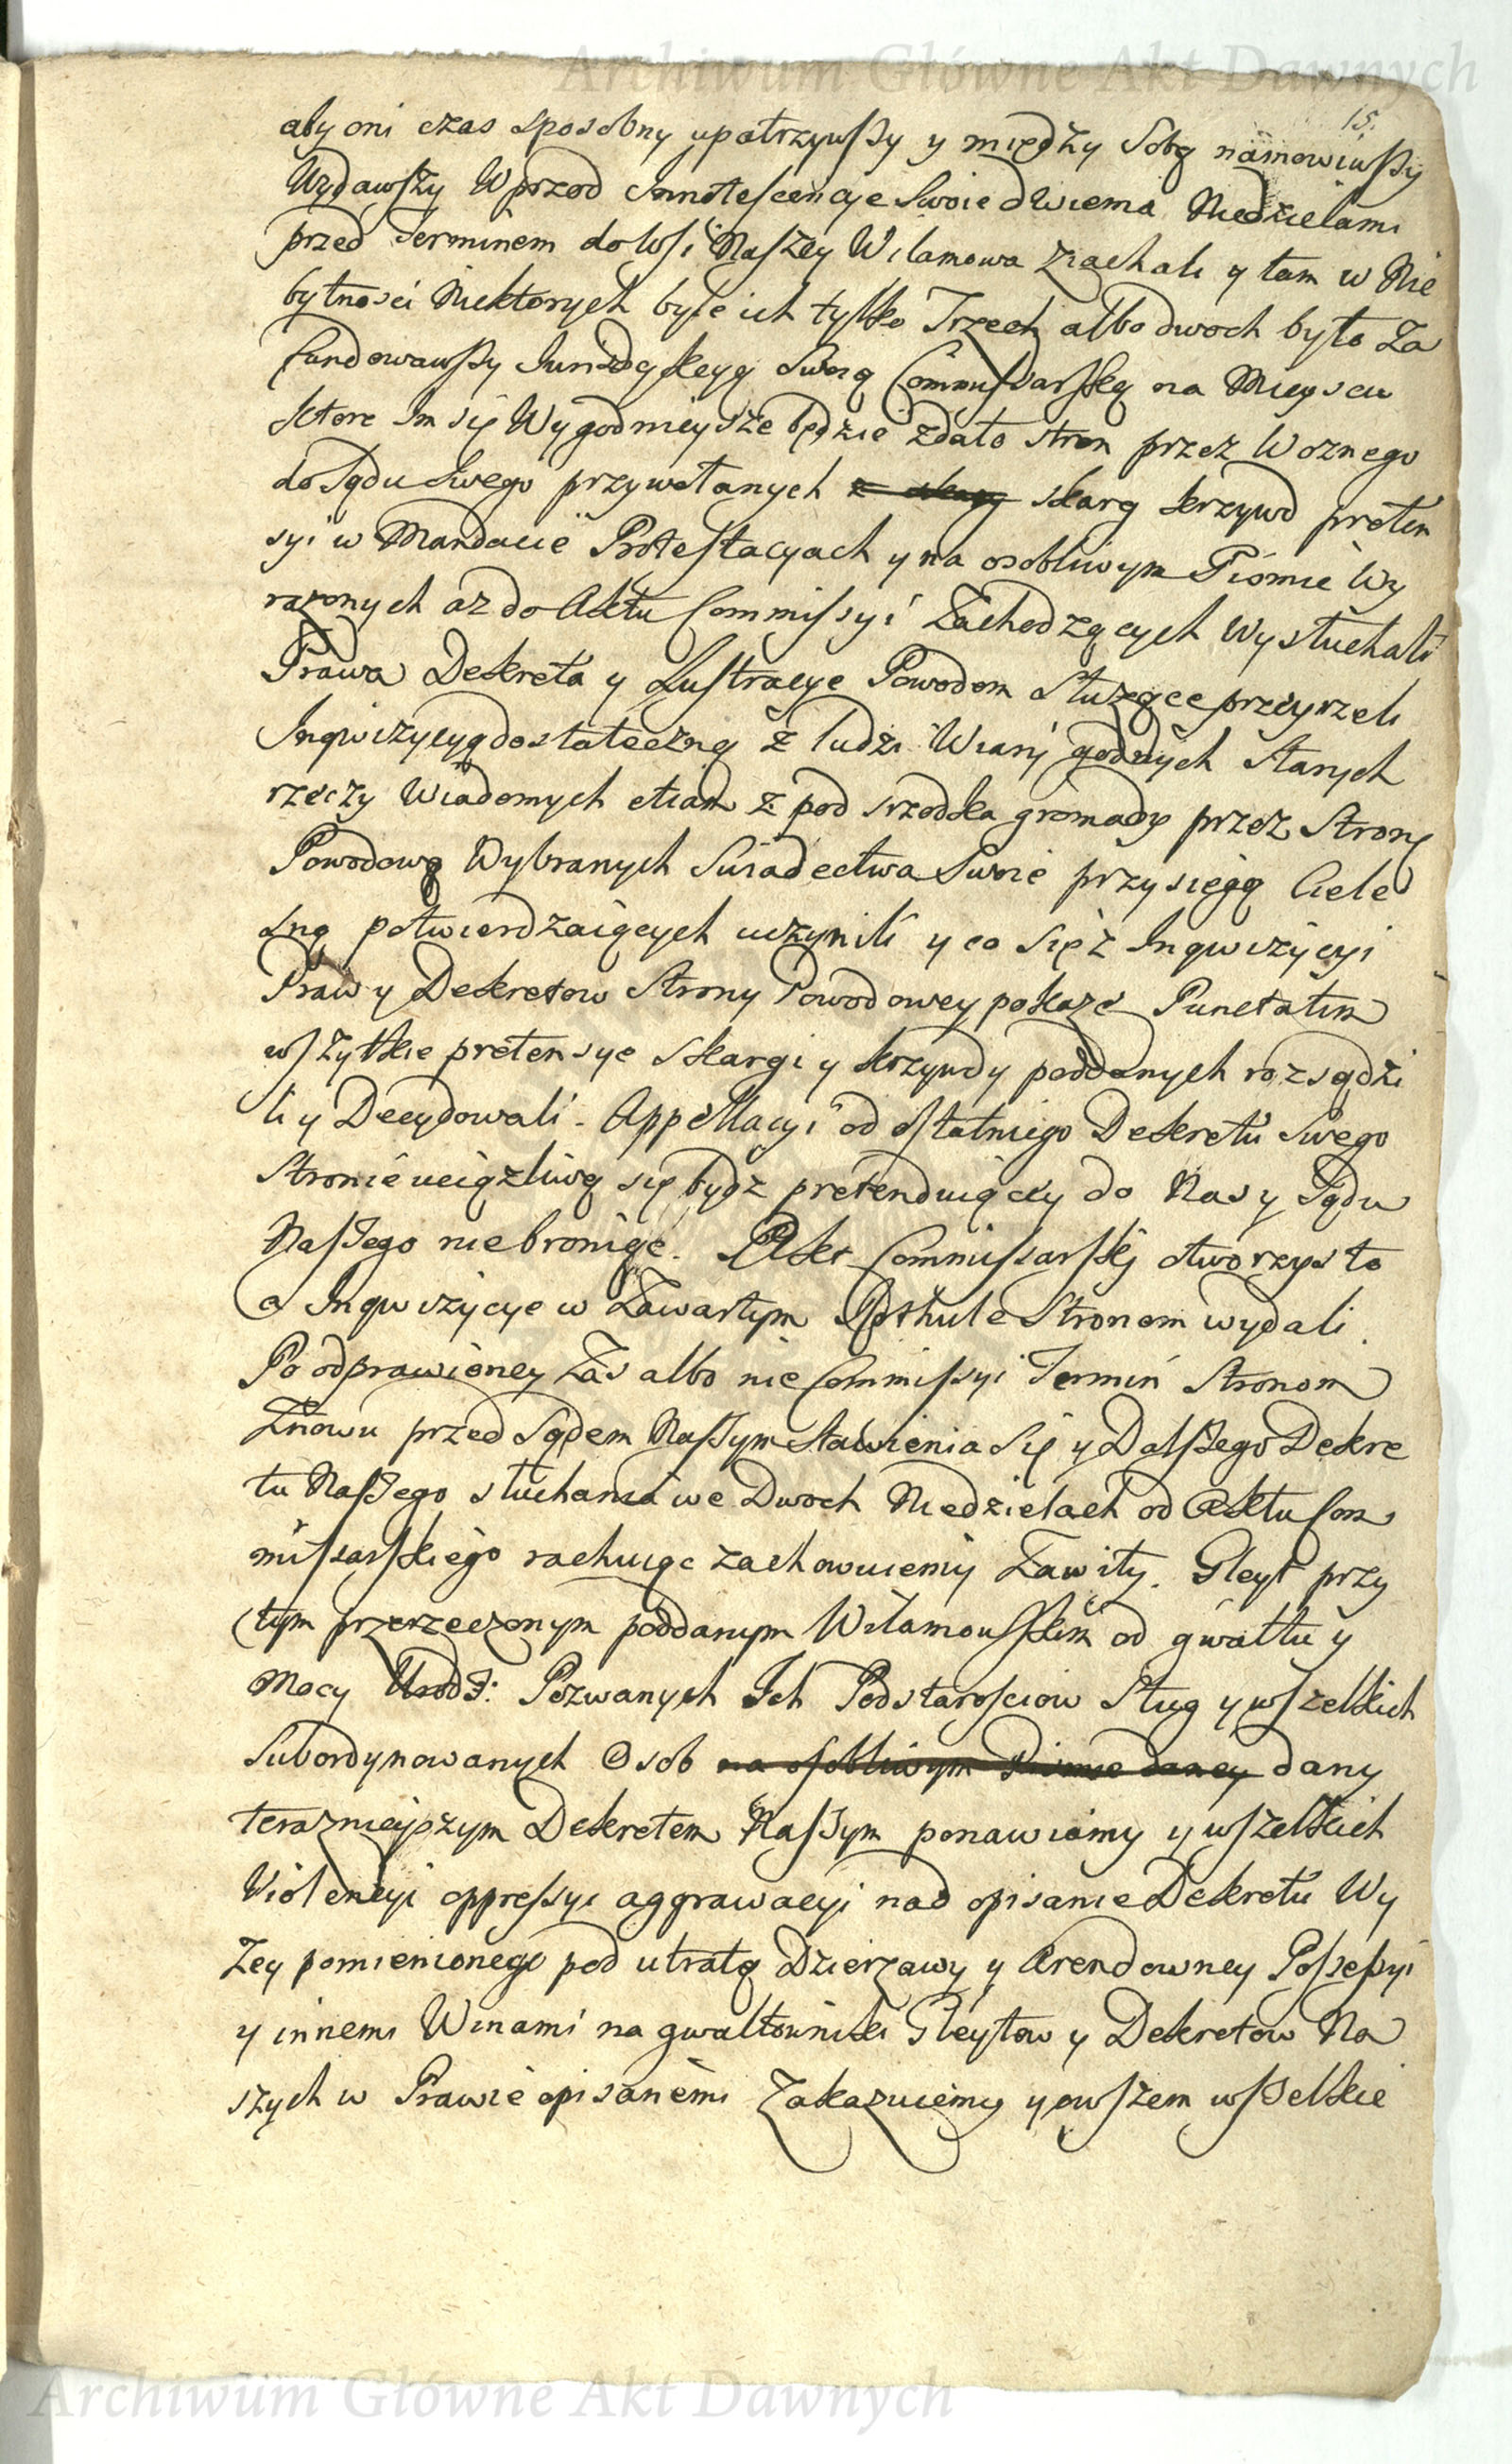 Archiwum Główne Akt Dawnych
15.
aby oni czas sposobny upatrzywszy y między Sobą namowiwszy
Wydawszy Wprzod Innotescencye Swoie dwiema Niedzielami
przed Terminem do Wsi Naszey Wilamowa Ziachali y tam w Nie
bytnosci Niektorych byle ich tylko Trzech albo dwoch było Za
fundowawszy Jurisdykcyą Swoią Commissarską na Mieyscu
ktore Im się Wygodnieysze będzie zdało stron przez Woznego
do Sądu Swego przywołanych z skarg skarg krzywd preten
syi w Mandacie Protestacyach y na osobliwym Piśmie Wy
rażonych aż do Aktu Commissyi Zachodzących Wysłuchali
Prawa Dekreta y Lustracye Powodom Służące przeyrzeli
Inqwizycyą dostateczną z ludzi Wiary godnych Starych
rzeczy Wiadomych etiam z pod srzodka gromady przez Stronę
Powodową Wybranych Swiadectwa Swoie przysięgą Ciele
sną potwierdzaiących uczynili y co się z Inqwizycyi
Praw y Dekretow Strony Powodowey pokaże Punctatim
wszytkie pretensye Skargi y krzywdy poddanych rozsądzi
li y Decydowali. Appellacyi od ostatniego Dekretu Swego
Stronie uciążliwą się bydz pretenduiącey do Nas y Sądu
Naszego niebroniąc. Akt Commissarski otworzysto
a Inqwizycye w Zawartym Rothule Stronom wydali.
Po odprawioney Zas albo nie Commissyi Termin Stronom
Znowu przed Sądem Naszym Stawienia się y Dalszego Dekre
tu Naszego słuchania we Dwoch Niedzielach od Aktu Com
missarskiego rachuiąc zachowuiemy Zawity. Gleyt przy
tym przerzeczonym poddanym Wilamowskim od gwałtu y
Mocy Urodz: Pozwanych Ich Podstarosciow Sług y wszelkich
Subordynowanych Osob na osobliwym Pismie daney dany
teraznieyszym Dekretem Naszym ponawiamy y wszelkich
Violencyi oppressyi aggrawacyi nad opisanie Dekretu Wy
Zey pomienionego pod utratą Dzierzawy y Arendowney Possessyi
y innemi Winami na gwałtowniki Gleytow y Dekretow Na
szych w Prawie opisanemi Zakazuiemy y owszem wszelkie
Archiwum Główne Akt Dawnych